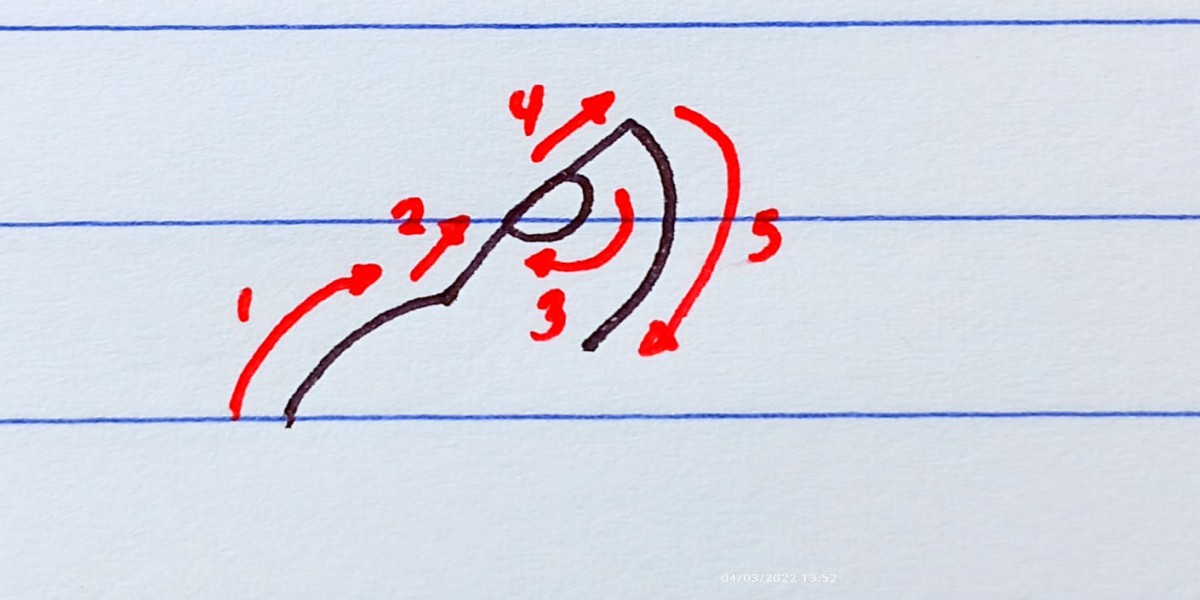 4
2
1
5
3
04/03/2022 13:52